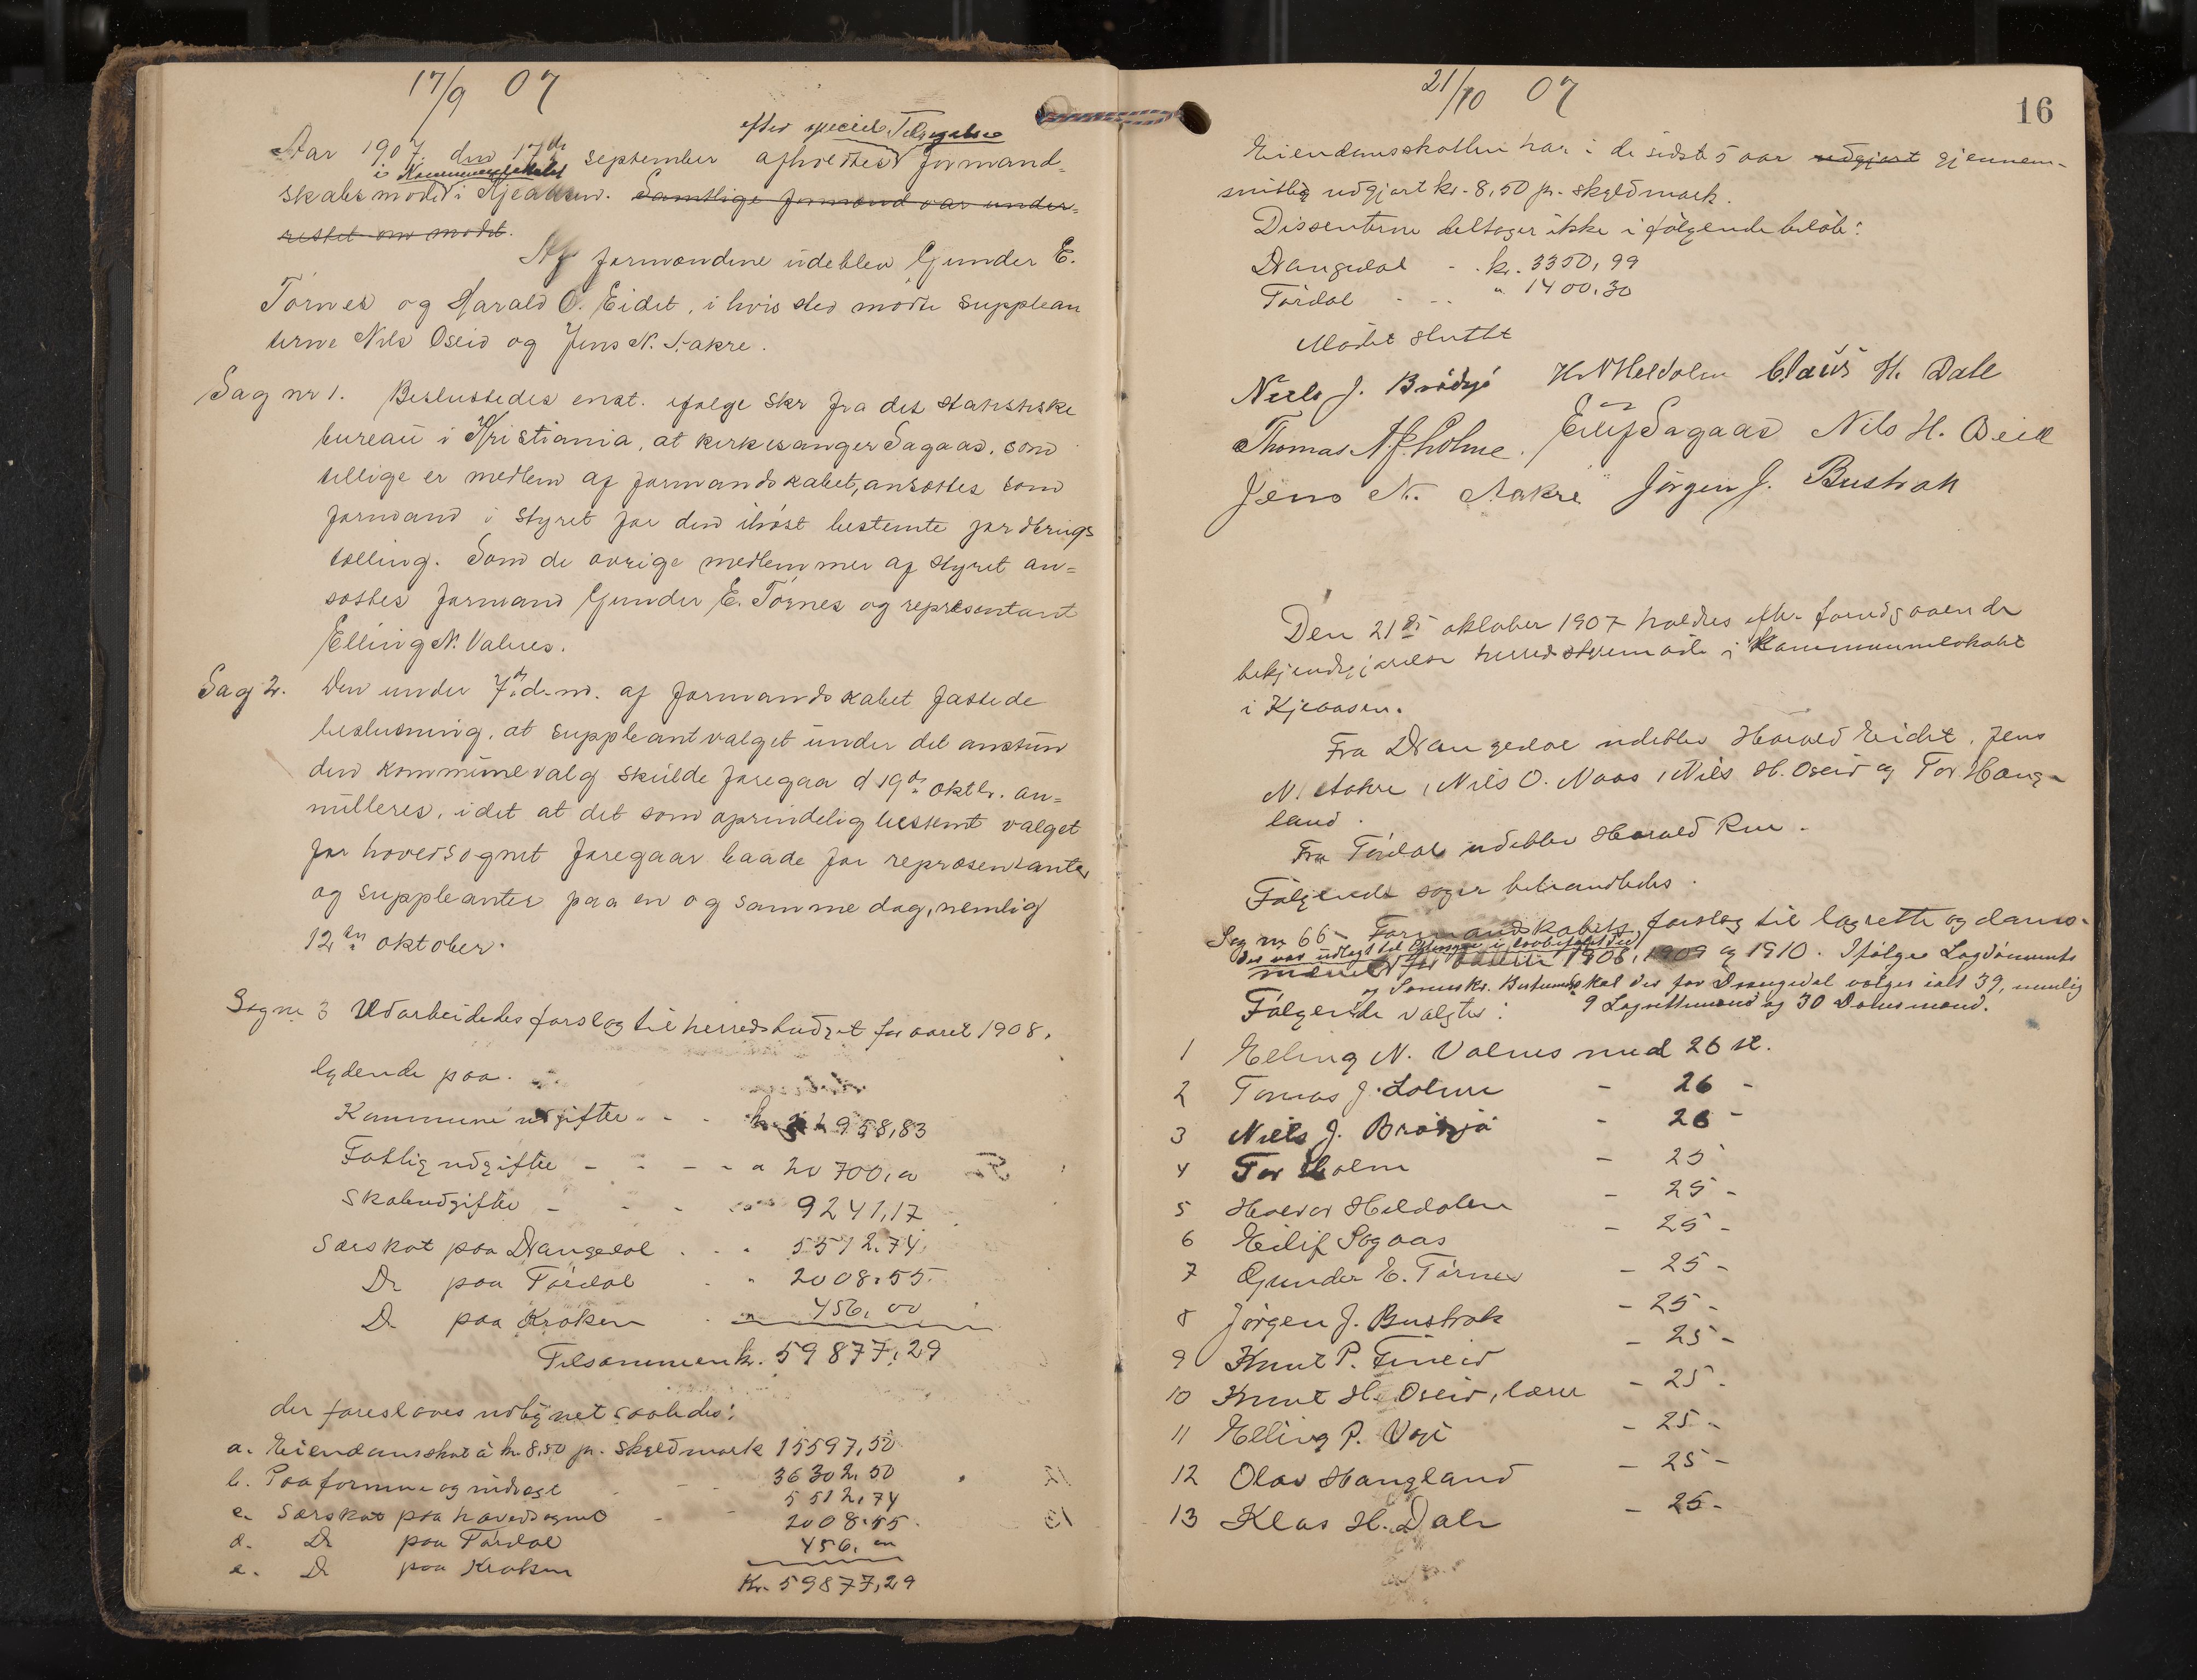 17/9 07
efter speciel Tilsigelse
Aar 1907 den 17de september afholdtes formand-
i Kommunelokalet
skabsmøde i Kjeaasen. Samtlige formænd var under-
rettet om mødet.
Af formændene udeblev Gunder E.
Törnes og Harald O. Eidet, i hvis sted mødte supplean
terne Nils Oseid og Jens N. Aakre.
Sag nr 1. Besluttedes enst. ifølge skr fra det statistiske
bureau i Kristiania, at kirkesanger Sagaas, som
tillige er medlem af formandskabet, ansættes som
formand i styret for den ihøst bestemte jordbrugs
tælling. Som de øvrige medlemmer af styret an=
sættes formand Gunder E. Törnes og repræsentant
Elling N. Valnes.
Sag 2. Den under 7de d.m. af formandskabet fattede
beslutning, at suppleantvalget under det anstun
den kommunevalg skulde foregaa d 19de oktbr. an=
nulleres, idet at det som oprindelig bestemt valget
for hovedsognet foregaar baade for repræsentanter
og suppleanter paa en og samme dag, nemlig
12te oktober.
Sag nr 3 Udarbeidedes forslag til herredsbudget for aaret 1908,
lydende paa.
Kommuneudgifter - - kr. 958,83
Fattigudgifter - - - - " 20700,00
Skoleudgifter - - - 9241,17
Særskat paa Drangedal . . . 5512,74
Do paa Tördal - " 2008,55
Do paa Kroken . " 456,00
Tilsammen kr. 59877,29
der foresloaes udlignet saaledes:
a. Eiendomsskat à kr. 8,50 pr. skyldmark 15597,50
b. Paa formue og indtægt - - 36302,50
c. Særskat paa hovedsognet - - 5512,74
d. Do paa Tördal 2008,55
e. Do paa Kroken 456,00
Kr. 59877,29
21/10 07
16
Eiendomsskatten har i de sidste 5 aar udgjort gjennem-
snitlig udgjort kr. 8,50 pr. skyldmark.
Dissenterne deltager ikke i følgende beløb:
Drangedal - . kr. 3350,99
Tördal - - . " 1400,30
Mødet sluttet
Niels J. Brödsjö H. N Heldalen Claus H. Dale
Thomas J. Holme. Eilif Sagaas Nils H. Oseid
Jens N. Aakre Jörgen J. Bustrak
Den 21de oktober 1907 holdtes efter forudgaaende
bekjendtgjørelse herredstyremøde i Kommunelokalet
i Kjeaasen.
Fra Drangedal udeblev Harald Eidet, Jens
N. Aakre, Nils O. Naas, Nils H. Oseid og Tor Haug-
land.
Fra Tördal udeblev Harald Rue.
Følgende sager behandledes.
Sag nr 66 - Formandskabets forslag til lagrette og doms-
der var udlagt til Eftersyn i lovbefalet tid
mænd for aarene 1908, 1909 og 1910. Ifølge Lagdømmets
og Sorenskr. Bestemmelse skal der for Drangedal vælges ialt 39, nemlig
Følgende valgtes: 9 Lagrettemænd og 30 Domsmænd.
1 Elling N. Valnes med 26 st.
2 Tomas J. Holme - 26 -
3 Niels J. Brödsjö - 26 -
4 Tor Holm - 25
5 Halvor Heldalen - 25 -
6 Eilif Sagaas - 25 -
7 Gunder E. Törnes - 25 -
8 Jörgen J. Bustrak - 25 -
9 Knut P. Fineid - 25 -
10 Knut H. Oseid, lærer - 25 -
11 Elling P. Vøje - 25 -
12 Olav Haugland - 25 -
13 Klas H. Dale - 25 -